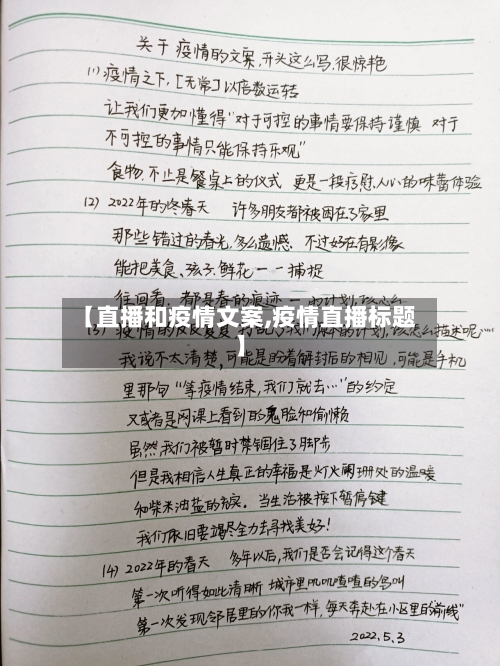 关于疫情的文案,开头这么写,很惊艳
(1)疫情之下,[无常]以倍数运转
让我们更加懂得"对于可控的事情要保持谨慎 对于
不可控的事情只能保持乐观"
食物,不止是餐桌上的仪式 更是一段疗慰人心的味蕾体验
(2) 2022年的终春天 许多朋友都被困在了家里
那些错过的春光,多么遗憾、不过好在有影像
能把美食、孩子、鲜花一一捕捉
往回看,都是春的痕迹
【直播和疫情文案,疫情直播标题
】
(3) 疫情的反反复复 我们 的计划,该怎么描述呢…
我说不太清楚,可能是的着解封后的相见,可能是手机
里那句"等疫情结束,我们就去…"的约定
又或者是网课上看到的鬼脸和偷懒
虽然我们被暂时禁锢住了脚步
但是我相信人生真正的幸福是灯火阑珊处的温暖
和柴米油盐的充实。当生活被按下暂停键
我们依旧要竭尽全力去寻找美好!
(4) 2022年的春天 多年以后,我们是否会记得这个春天
第一次听得如此清晰 城市里叽叽喳喳的鸟叫
第一次发现邻居里的你我一样,每天奔赴在小区里的"前线"
2022.5.3